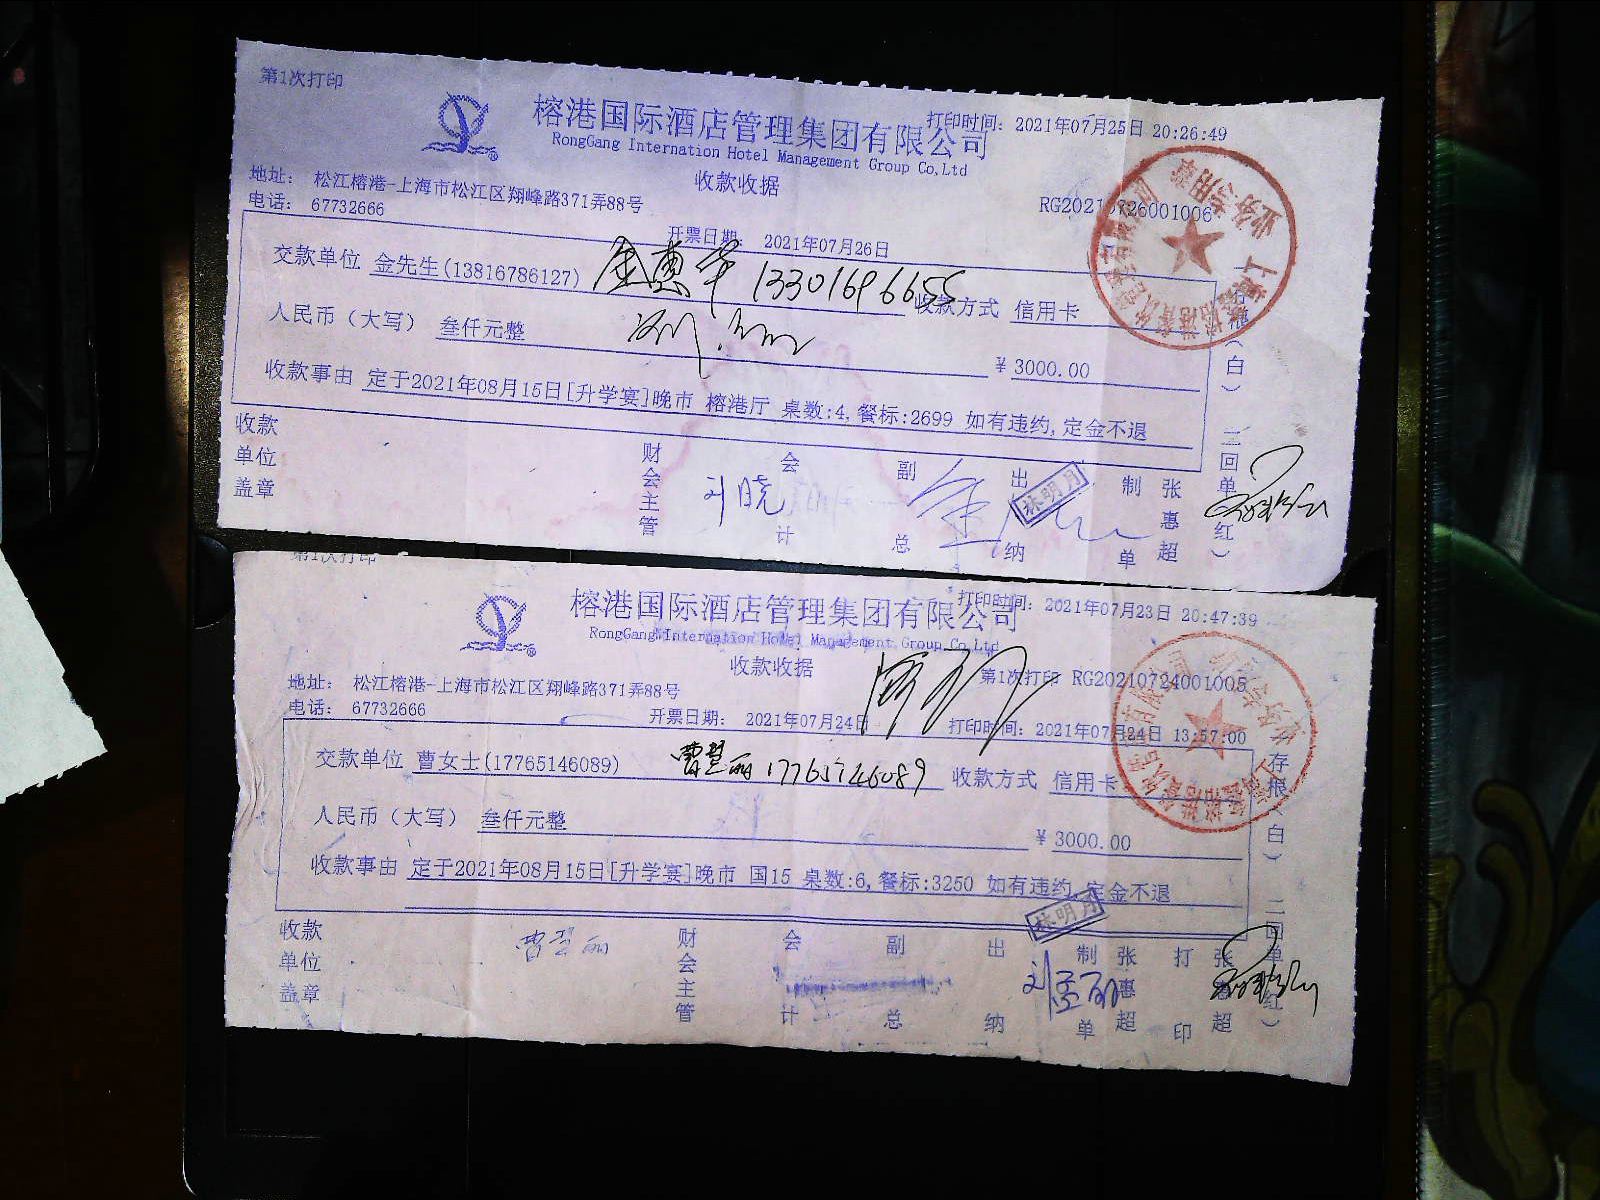 第1次打印
榕港国际酒店管理集团有限公司
打印时间: 2021年07月25日 20:26:49
RongGang Internation Hotel Management Group Co,Ltd
收款收据
地址: 松江榕港-上海市松江区翔峰路371弄88号
RG20210726001006
电话: 67732666
开票日期: 2021年07月26日
交款单位 金先生(13816786127) 金惠华 13301696655 收款方式 信用卡
人民币（大写） 叁仟元整 ¥3000.00
收款事由 定于2021年08月15日[升学宴]晚市 榕港厅 桌数:4,餐标:2699 如有违约,定金不退
收款单位盖章
财会主管
会计
刘晓
副总
出纳
林明月
制单
张惠超
存根（白）二回单（红）
业务专用章
第1次打印
榕港国际酒店管理集团有限公司
打印时间: 2021年07月23日 20:47:39
RongGang Internation Hotel Management Group Co,Ltd
收款收据
第1次打印 RG20210724001005
地址: 松江榕港-上海市松江区翔峰路371弄88号
电话: 67732666
开票日期: 2021年07月24日
打印时间: 2021年07月24日 13:57:00
交款单位 曹女士(17765146089) 曹慧丽 17765146089 收款方式 信用卡
人民币（大写） 叁仟元整 ¥3000.00
收款事由 定于2021年08月15日[升学宴]晚市 国15 桌数:6,餐标:3250 如有违约,定金不退
收款单位盖章
曹慧丽
财会主管
会计
副总
出纳
林明月
制单
张惠超
打印
张惠超
存根（白）二回单（红）